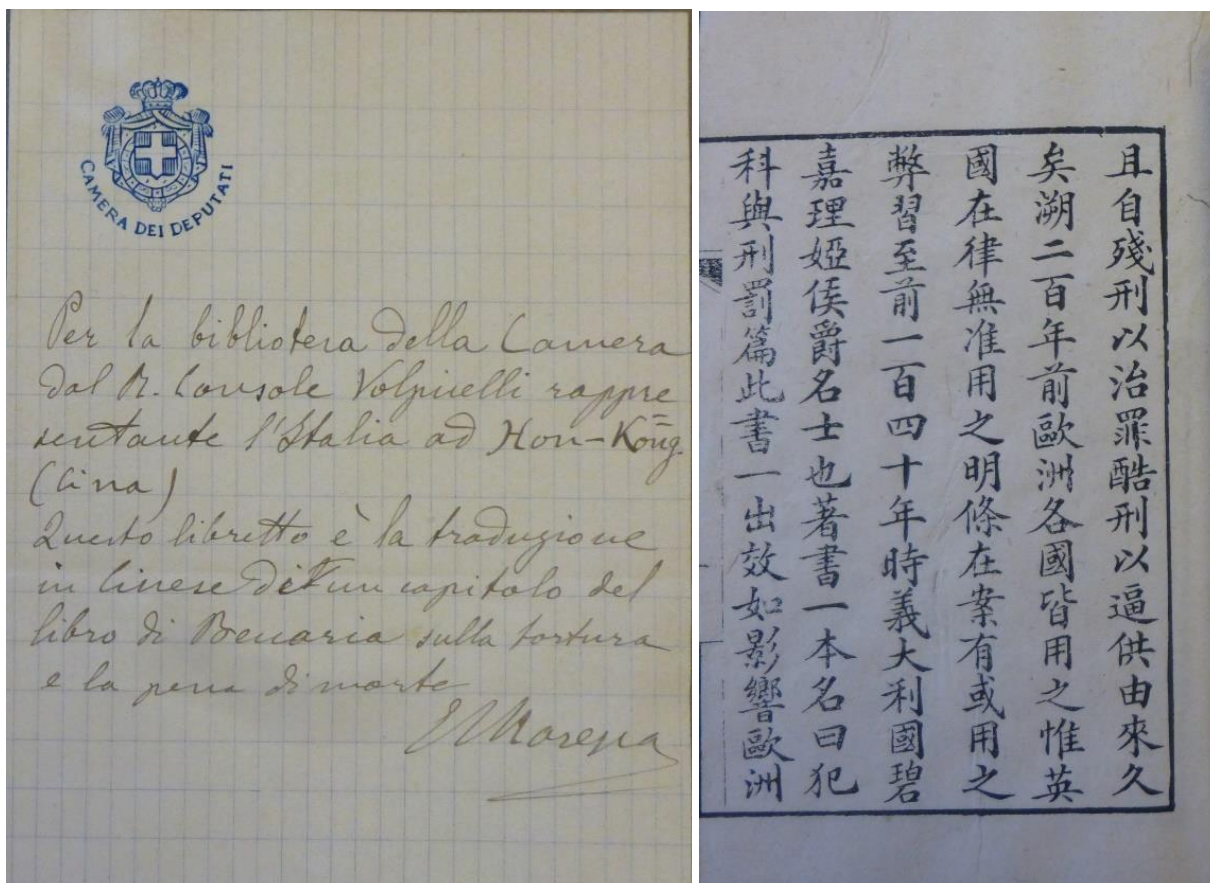 CAMERA DEI DEPUTATI
Per la biblioteca della Camera
dal R. Console Volpicelli rappre
sentante l'Italia ad Hon-Kong
(Cina)
Questo libretto è la traduzione
in Cinese di un capitolo del
libro di Beccaria sulla tortura
e la pena di morte
且自殘刑以治罪酷刑以逼供由來久
矣溯二百年前歐洲各國皆用之惟英
國在律無准用之明條在案有或用之
弊習至前一百四十年時義大利國碧
嘉理婭侯爵名士也著書一本名曰犯
科與刑罰篇此書一出效如影響歐洲